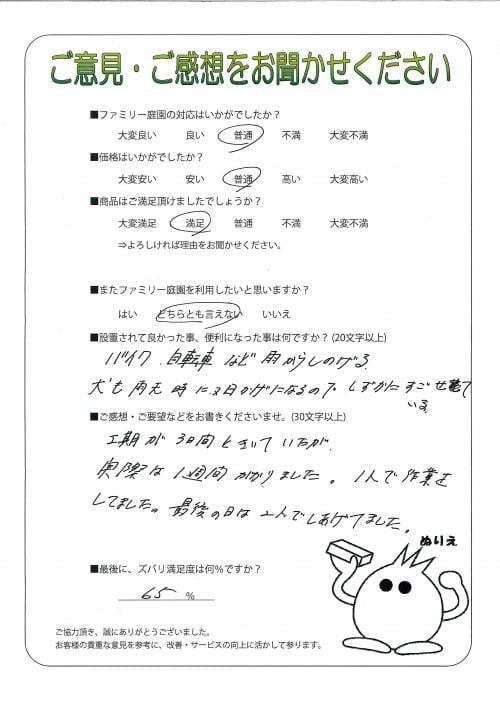 ご意見・ご感想をお聞かせください
■ファミリー庭園の対応はいかがでしたか？
大変良い 良い 普通 不満 大変不満
■価格はいかがでしたか？
大変安い 安い 普通 高い 大変高い
■商品はご満足頂けましたでしょうか？
大変満足 満足 普通 不満 大変不満
⇒よろしければ理由をお聞かせください。
■またファミリー庭園を利用したいと思いますか？
はい どちらとも言えない いいえ
■設置されて良かった事、便利になった事は何ですか？(20文字以上)
バイク、自転車など雨からしのげる
犬も雨天時に、又日かげになるので しずかにすごせ
ている
■ご感想・ご要望などをお書きくださいませ。(30文字以上)
工期が3日間ときいていたが、
実際は1週間かかりました。1人で作業を
してました。最後の日は2人でしあげてました。
ぬりえ
■最後に、ズバリ満足度は何％ですか？
65 %
ご協力頂き、誠にありがとうございました。
お客様の貴重な意見を参考に、改善・サービスの向上に活かして参ります。